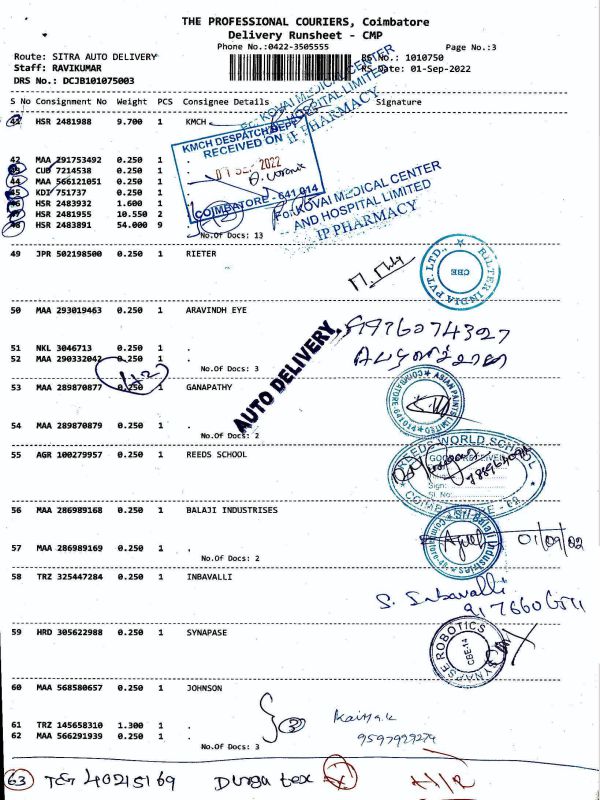 THE PROFESSIONAL COURIERS, Coimbatore
Delivery Runsheet - CMP
Phone No.:0422-3505555
Page No.:3
Route: SITRA AUTO DELIVERY
RS No.: 1010750
Staff: RAVIKUMAR
RS Date: 01-Sep-2022
DRS No.: DCJB101075003
S No Consignment No Weight PCS Consignee Details Signature
41 HSR 2481988 9.700 1 KMCH
42 MAA 291753492 0.250 1 .
43 CUD 7214538 0.250 1 .
44 MAA 566121051 0.250 1 .
45 KDI 751737 0.250 1 .
46 HSR 2483932 1.600 1 .
47 HSR 2481955 10.550 2 .
48 HSR 2483891 54.000 9 .
No.Of Docs: 13
KMCH DESPATCH DEPT
RECEIVED ON
01 SEP 2022
COIMBATORE - 641 014
KOVAI MEDICAL CENTER
HOSPITAL LIMITED
IP PHARMACY
For KOVAI MEDICAL CENTER
AND HOSPITAL LIMITED
IP PHARMACY
49 JPR 502198500 0.250 1 RIETER
RIETER INDIA PVT. LTD.,
CBE
50 MAA 293019463 0.250 1 ARAVINDH EYE
51 NKL 3046713 0.250 1 .
52 MAA 290332042 0.250 1 .
No.Of Docs: 3
AUTO DELIVERY,
53 MAA 289870877 0.250 1 GANAPATHY
54 MAA 289870879 0.250 1 .
No.Of Docs: 2
ASIAN PAINTS LIMITED
COIMBATORE 641014
55 AGR 100279957 0.250 1 REEDS SCHOOL
REEDS WORLD SCHOOL
Sign:
Sl. No:
56 MAA 286989168 0.250 1 BALAJI INDUSTRISES
57 MAA 286989169 0.250 1 .
No.Of Docs: 2
Sri Balaji Industries
Coimbatore-48.
01/09/02
58 TRZ 325447284 0.250 1 INBAVALLI
S. Inbavalli
59 HRD 305622988 0.250 1 SYNAPASE
SYNAPSE ROBOTICS
CBE-14
60 MAA 568580657 0.250 1 JOHNSON
61 TRZ 145658310 1.300 1 .
62 MAA 566291939 0.250 1 .
No.Of Docs: 3
3
9597929274
63 TEG 40215169 Durga tex